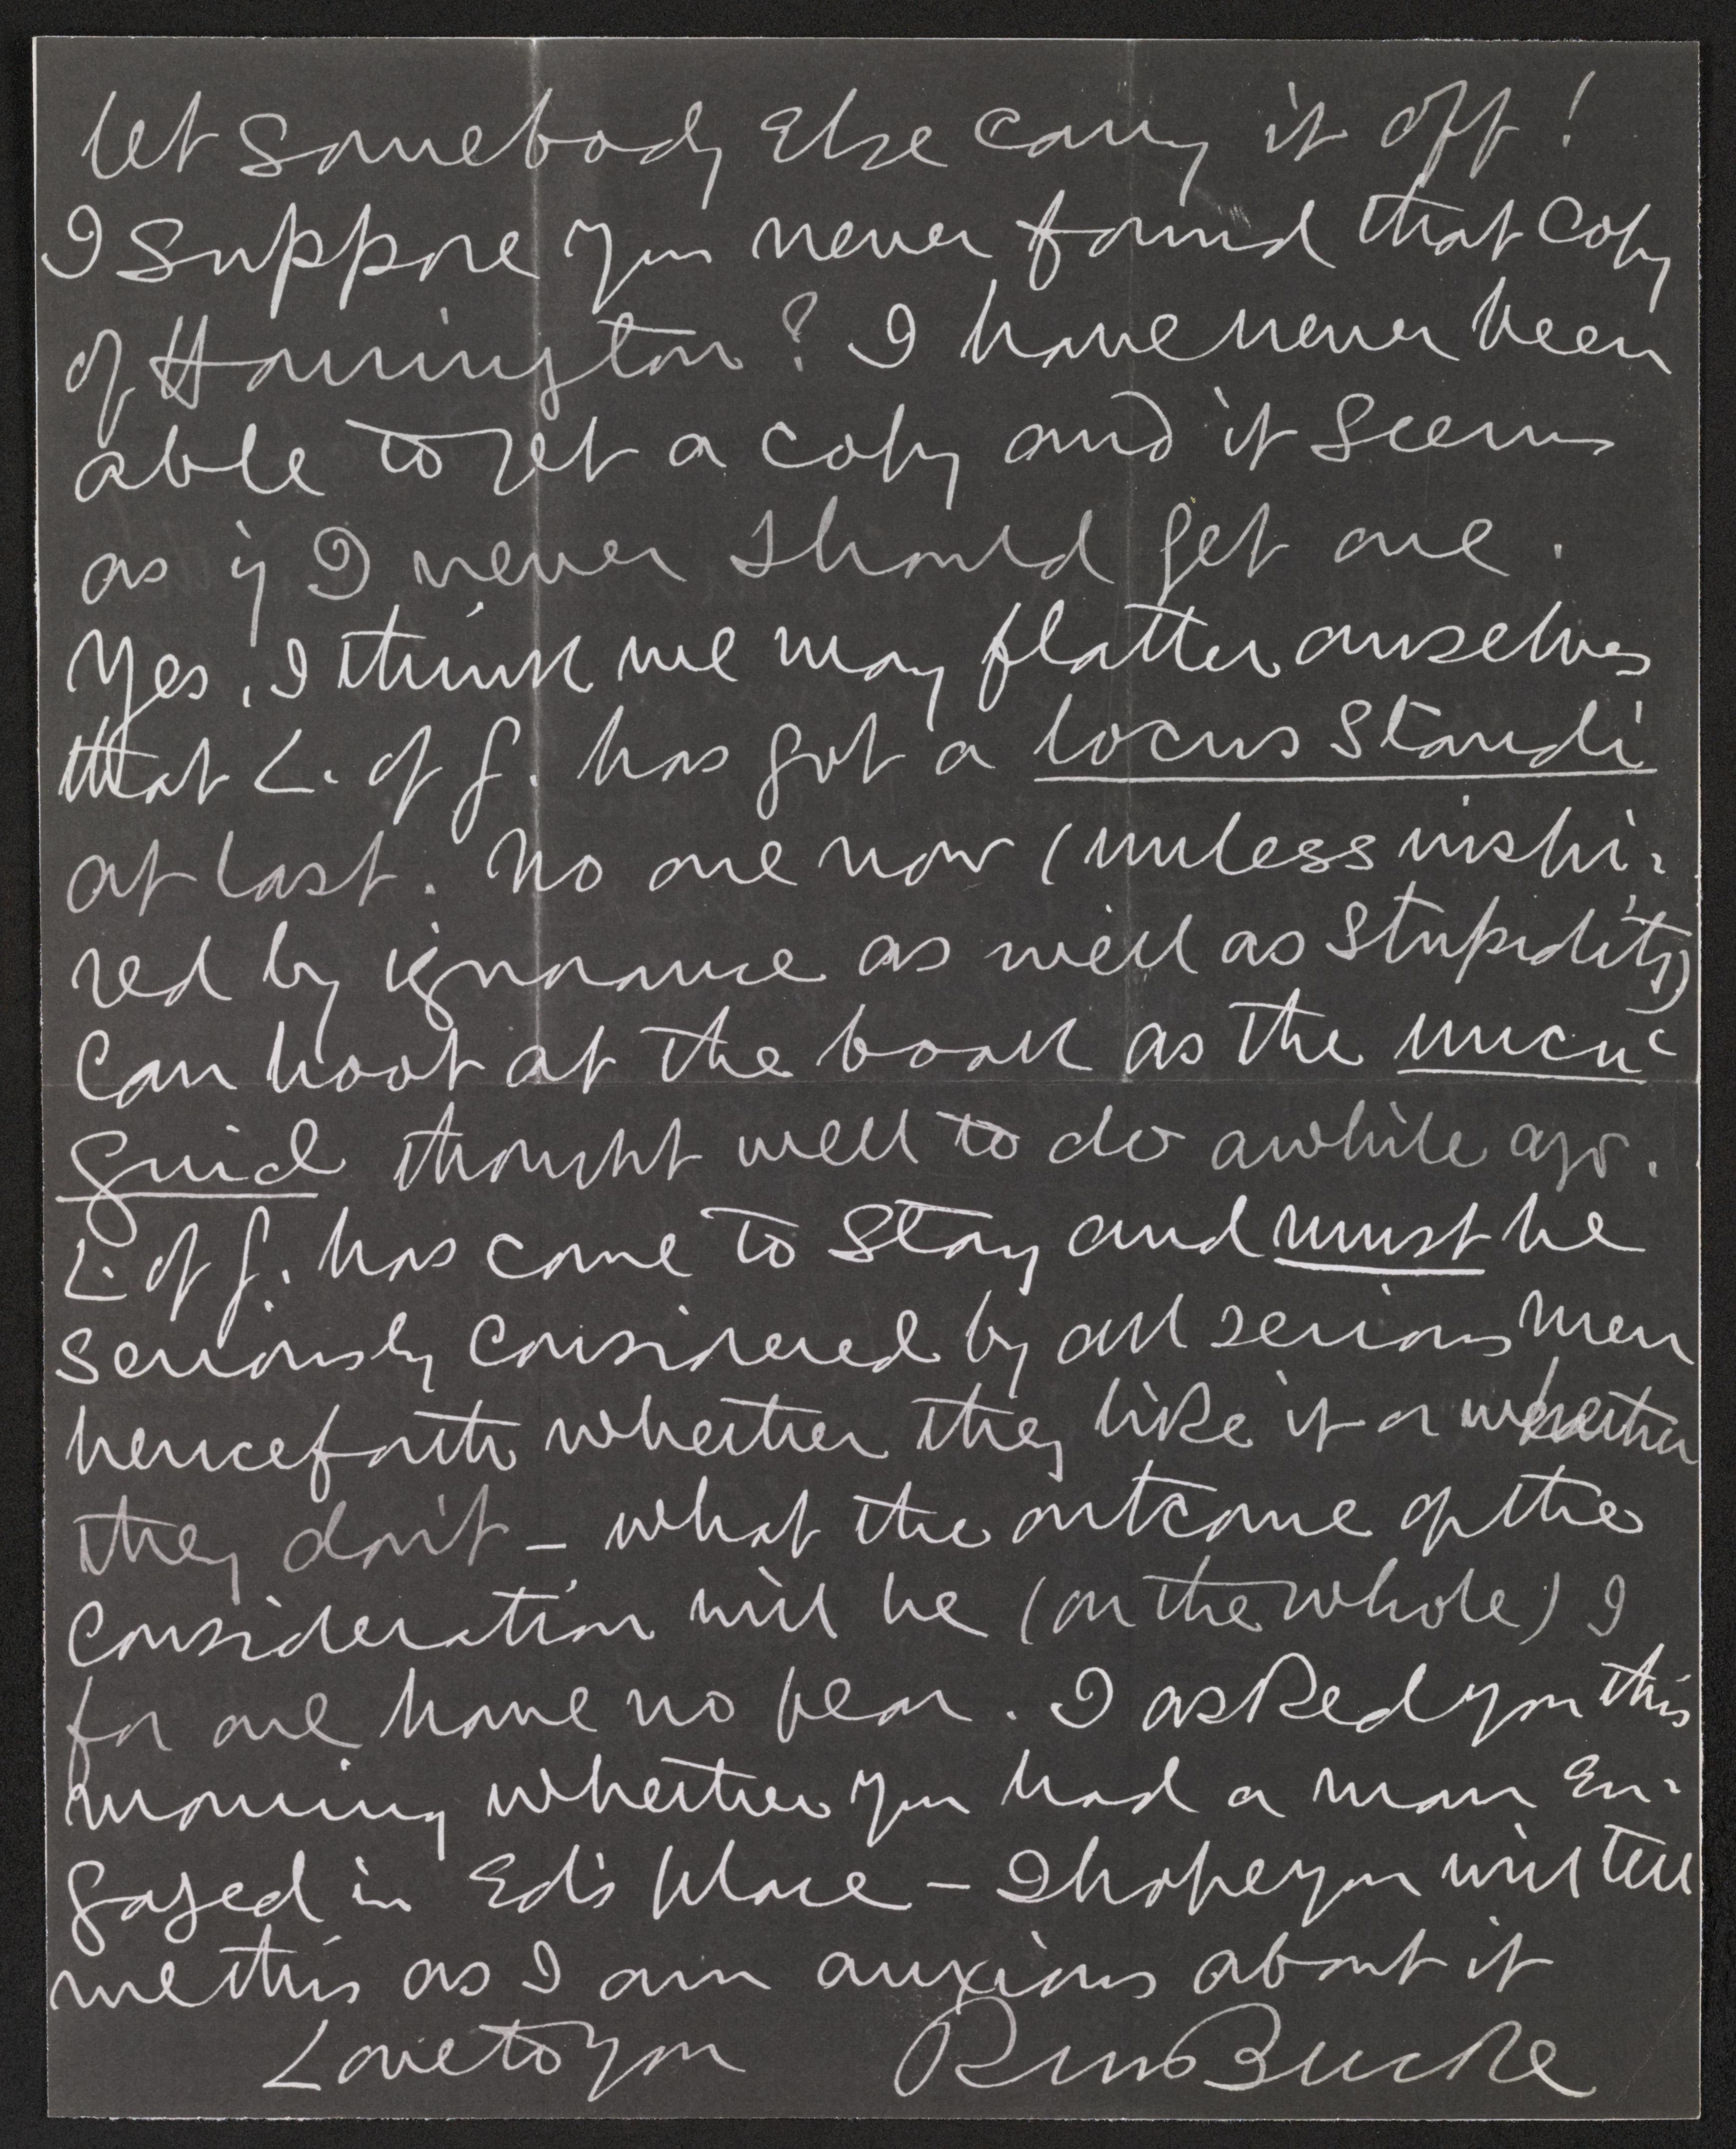 let somebody else carry it off!
I suppose you never found that copy
of Harrington? I have never been
able to get a copy and it seems
as if I never should get one.
Yes, I think we may flatter ourselves
that L. of G. has got a locus standi
at last. No one now (unless inspi-
red by ignorance as well as stupidity)
can hoot at the book as the
thought well to do awhile ago.
L. of G. has come to stay and must be
seriously considered by all serious men
henceforth whether they like it or whether
they don't – what the outcome of the
consideration will be (on the whole) I
for one have no fear. I asked you this
morning whether you had a man en-
gaged in Ed's place – I hope you will tell
me this as I am anxious about it
Love to you RM Bucke